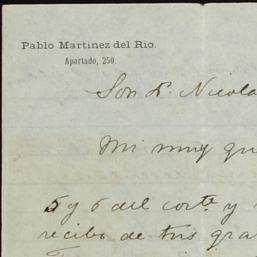 Pablo Martinez del Rio.
Apartado, 250.
Son D. Nicola
Mi muy qu
5 y 6 del corte. y
recibo de tus gra